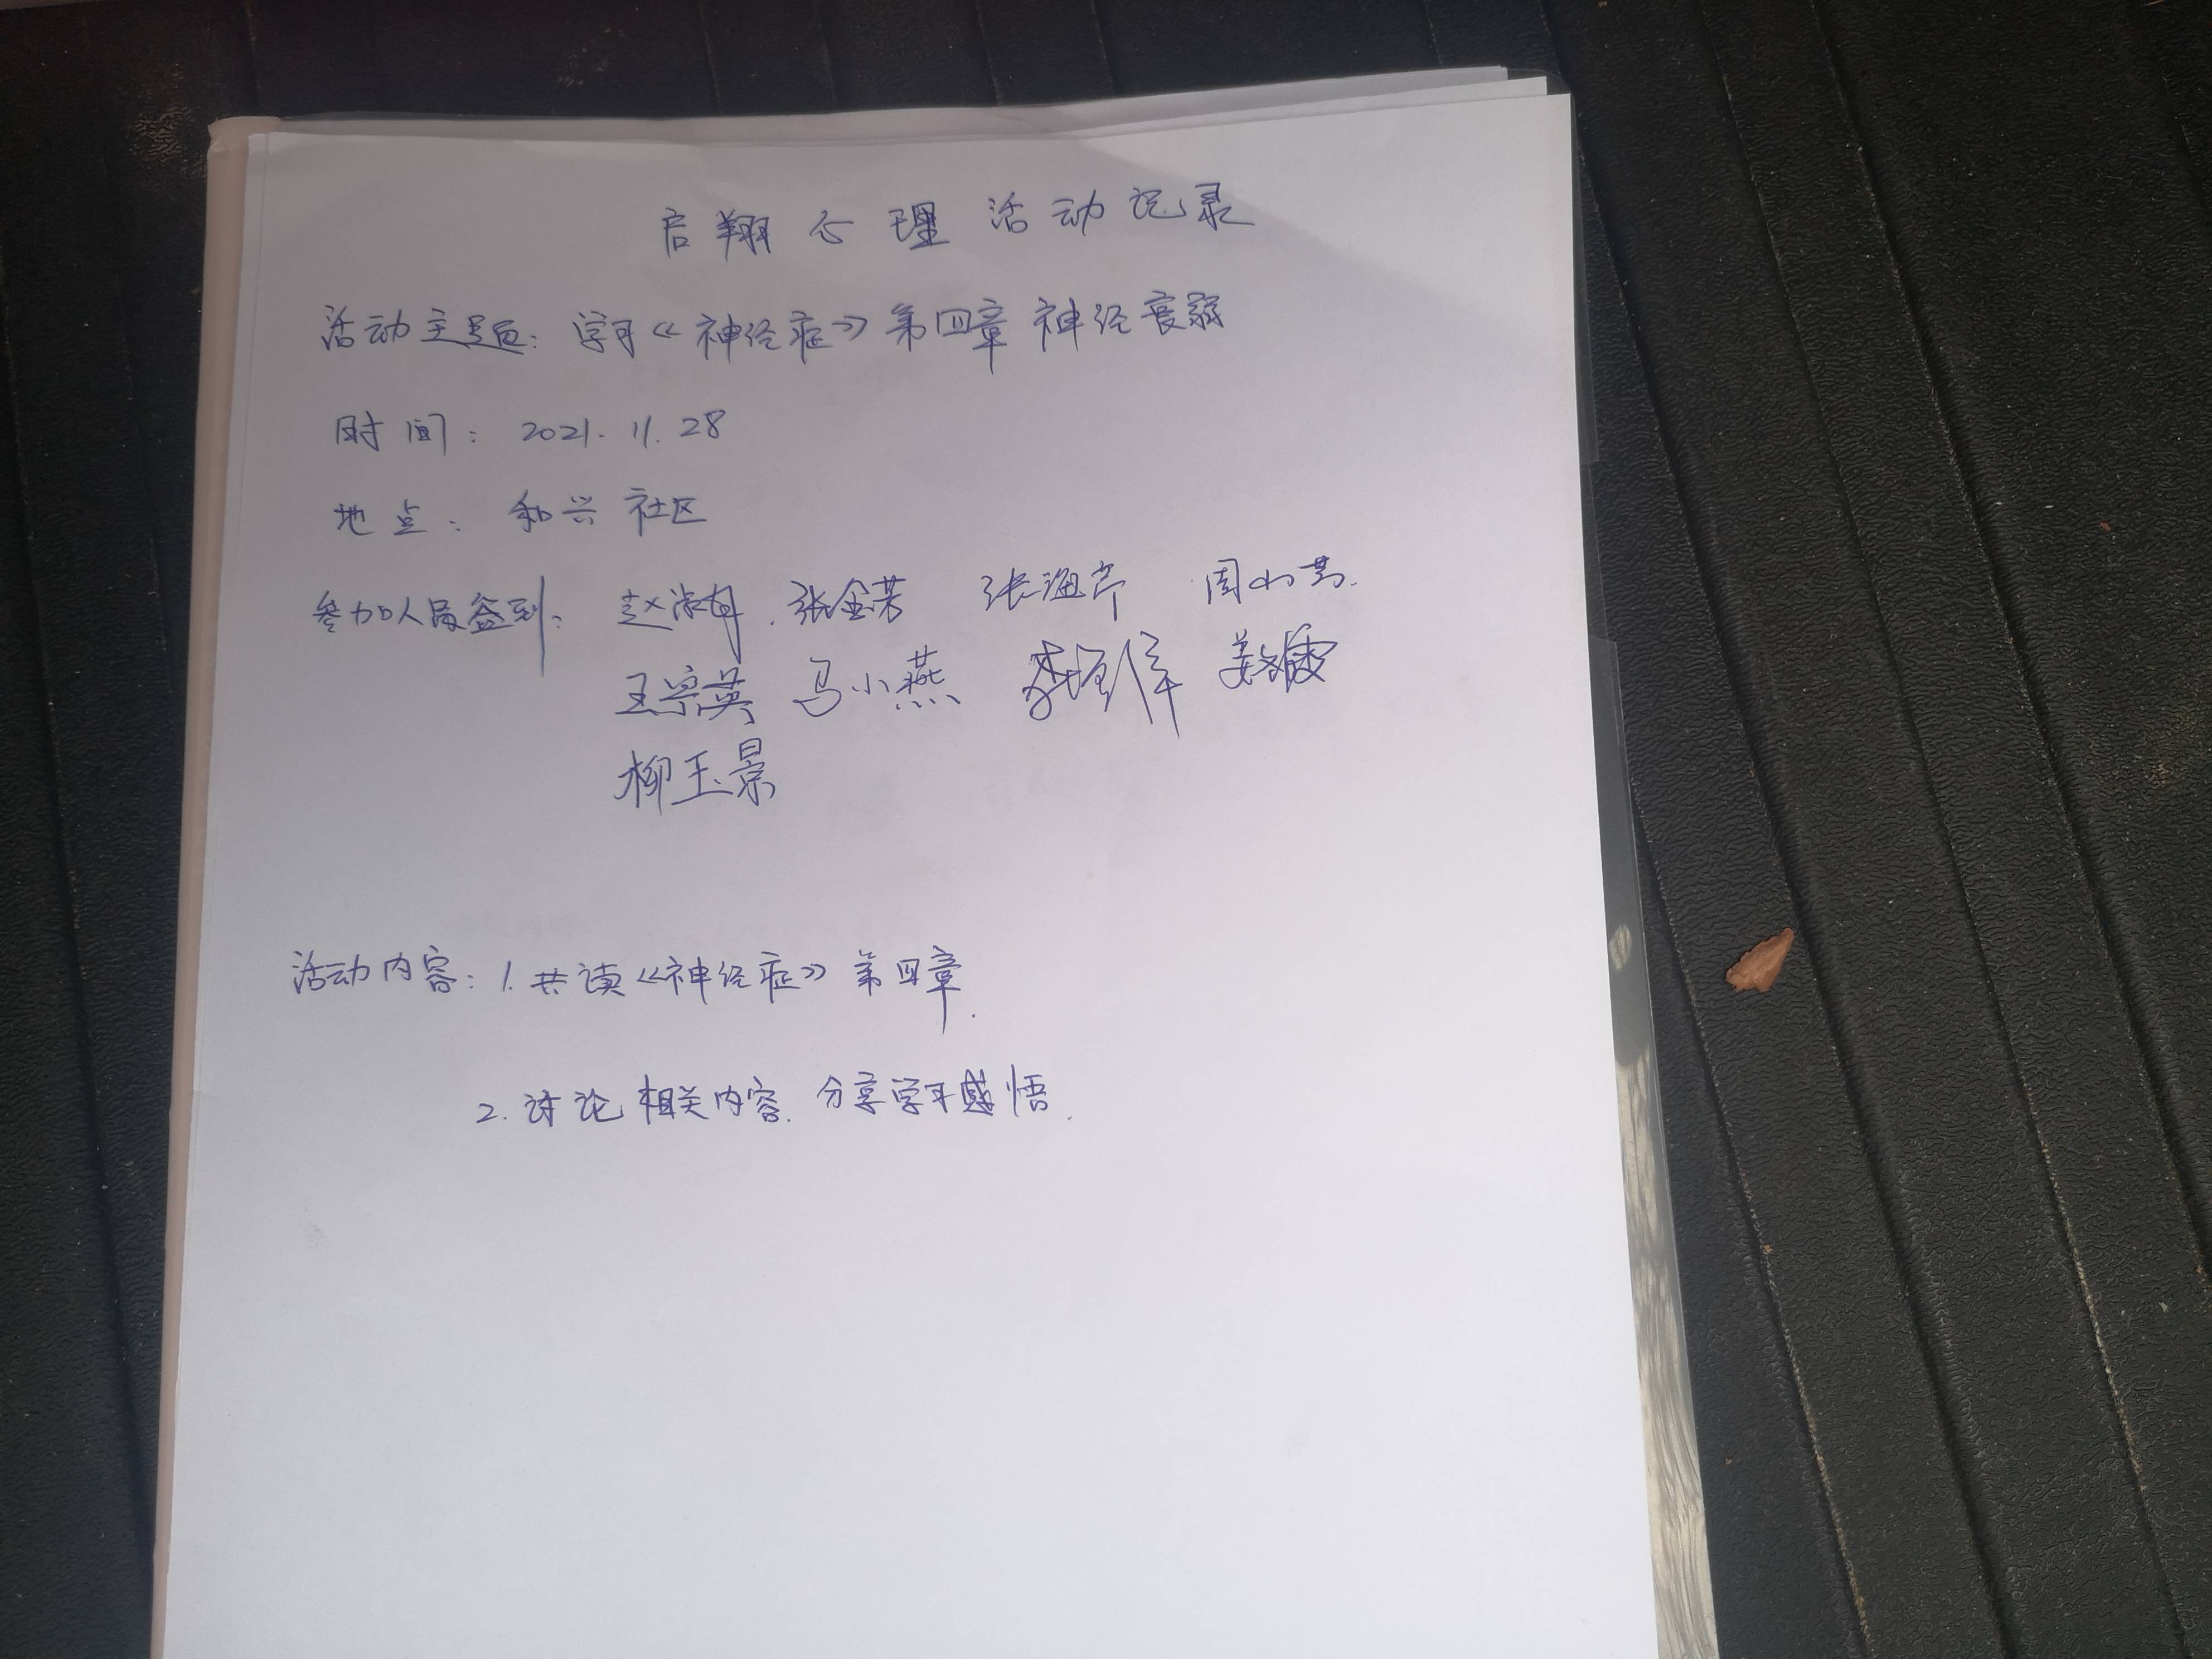 启翔心理活动记录
活动主题：学习《神经症》第四章 神经衰弱
时间：2021.11.28
地点：和兴社区
参加人员签到：赵淑 张金 张海芹 周小
王宗英 马小燕 李 姜
柳玉景
活动内容：1.共读《神经症》第四章.
2.讨论相关内容.分享学习感悟.